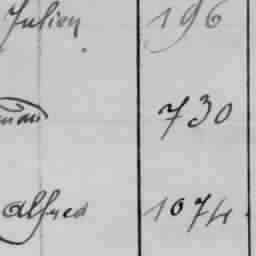 Julien 196
730
Alfred 1074